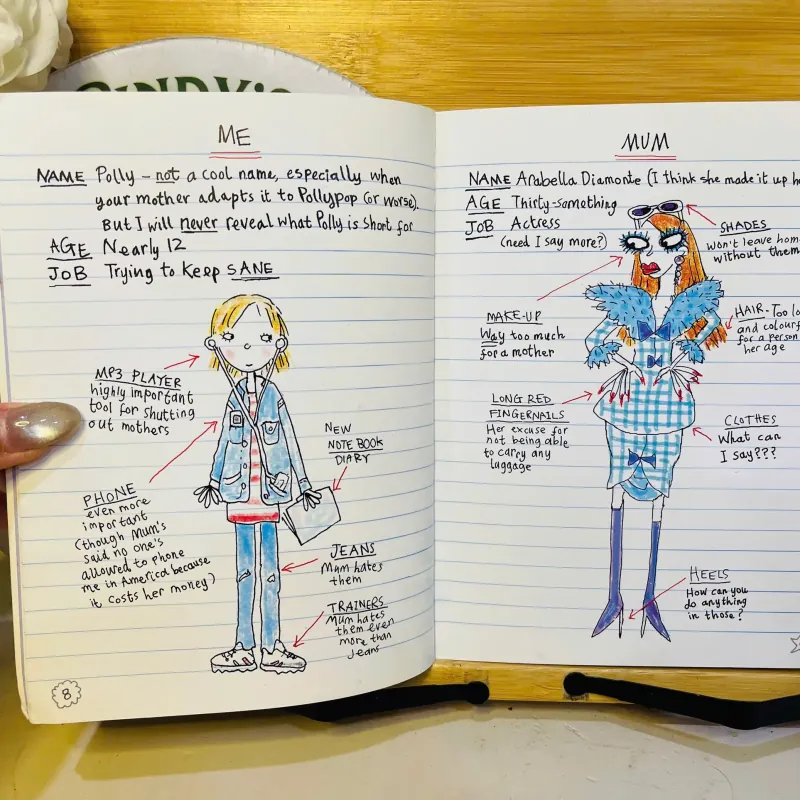 ME
NAME Polly – not a cool name, especially when
your mother adapts it to Pollypop (or worse).
But I will never reveal what Polly is short for
AGE Nearly 12
JOB Trying to keep SANE
MP3 PLAYER
highly important
tool for shutting
out mothers
PHONE
even more
important
(though Mum's
said no one's
allowed to phone
me in America because
it costs her money)
NEW
NOTE BOOK
DIARY
JEANS
Mum hates
them
TRAINERS
Mum hates
them even
more than
Jeans
8
MUM
NAME Arabella Diamonte (I think she made it up
AGE Thirty-something
JOB Actress
(need I say more?)
SHADES
won't leave
without them
MAKE-UP
Way too much
for a mother
HAIR - Too
and
for a person
her age
LONG RED
FINGERNAILS
Her excuse for
not being able
to carry any
luggage
CLOTHES
What can
I say???
HEELS
How can you
do anything
in those?